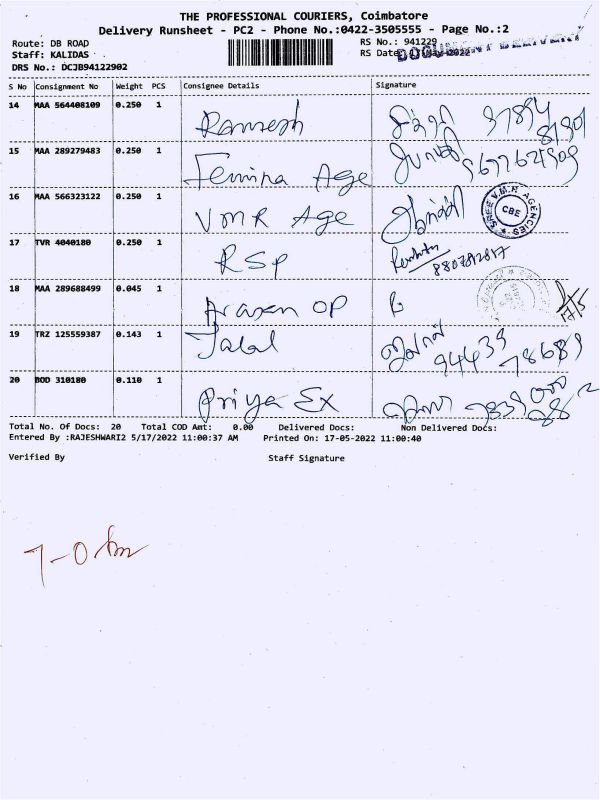 THE PROFESSIONAL COURIERS, Coimbatore
Delivery Runsheet - PC2 - Phone No.:0422-3505555 - Page No.:2
Route: DB ROAD
Staff: KALIDAS
DRS No.: DCJB94122902
RS No.: 941229
RS Date: May-2022
DOCUMENT DELIVERY
S No Consignment No Weight PCS Consignee Details Signature
14 MAA 564408109 0.250 1 Ramesh
15 MAA 289279483 0.250 1 Femina Age
16 MAA 566323122 0.250 1 VMR Age
SREE V.M.R AGENCIES CBE
17 TVR 4040180 0.250 1 RSP
18 MAA 289688499 0.045 1 OP
19 TRZ 125559387 0.143 1 Jalal 94439 78689
20 BOD 310180 0.110 1 Priya Ex
Total No. Of Docs: 20 Total COD Amt: 0.00 Delivered Docs: Non Delivered Docs:
Entered By :RAJESHWARI2 5/17/2022 11:00:37 AM Printed On: 17-05-2022 11:00:40
Verified By Staff Signature